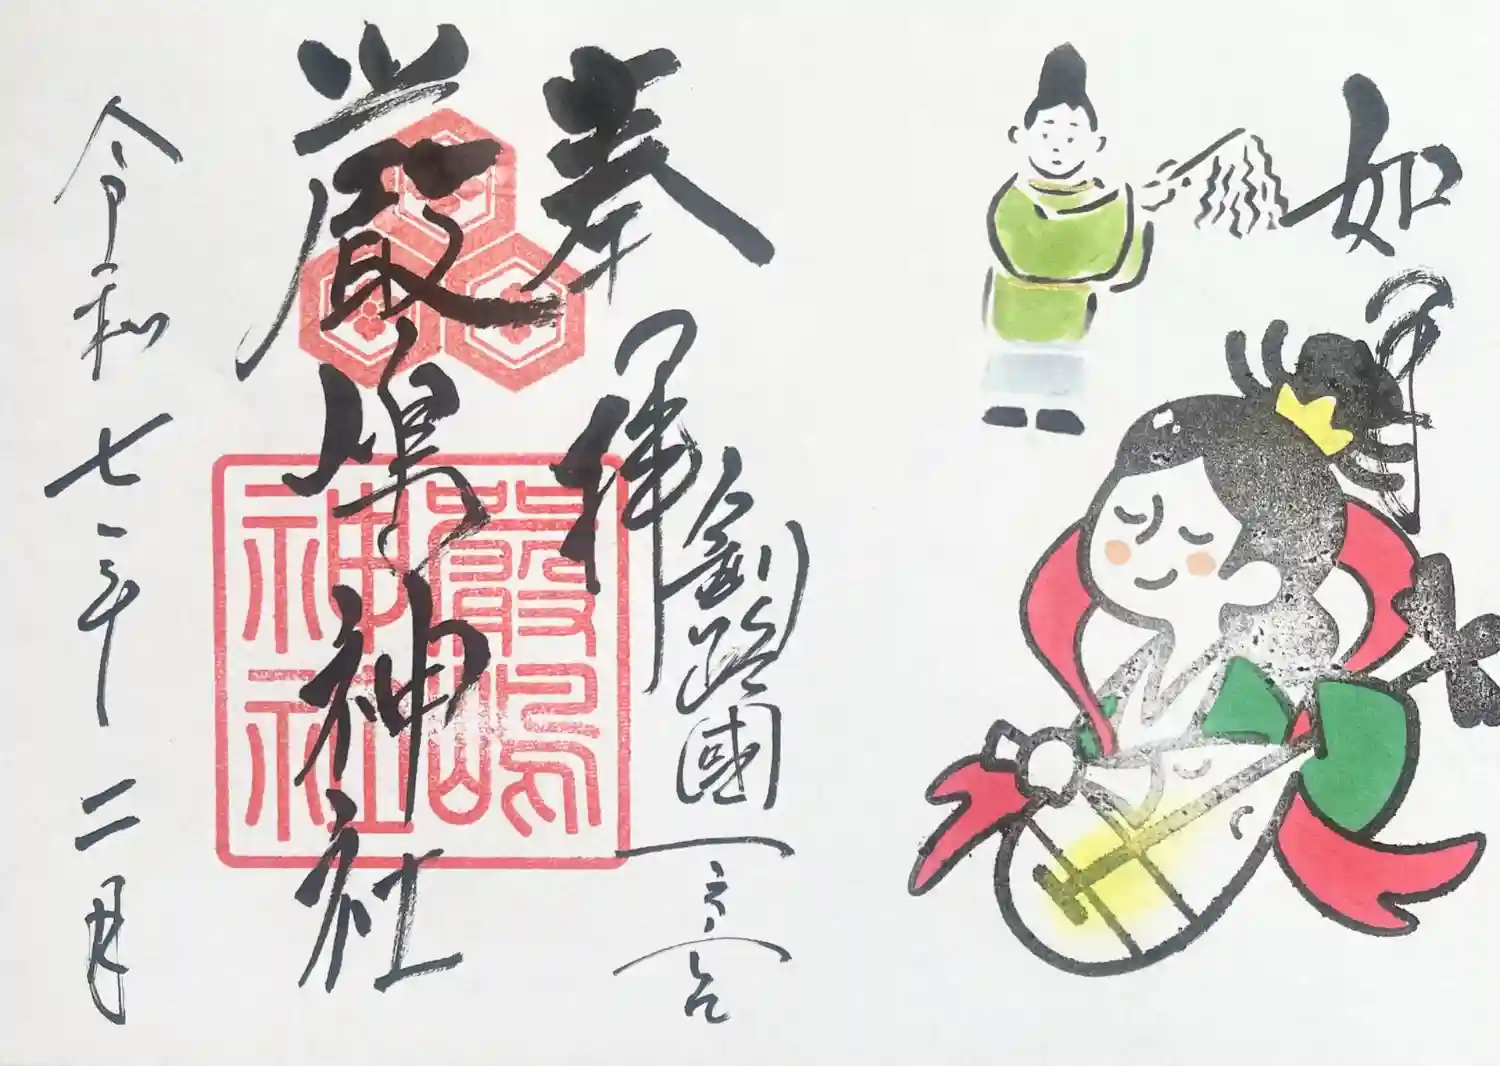 如月
奉拝
釧路國一之宮
厳島神社
嚴嶋
神社
令和七年二月